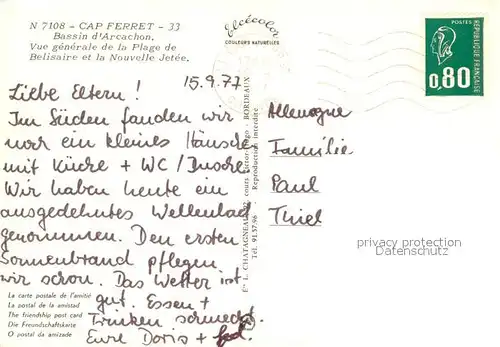 N 7108 - CAP FERRET - 33
Bassin d'Arcachon.
Vue générale de la Plage de
Belisaire et la Nouvelle Jetée.
elcécolor
COULEURS NATURELLES
POSTES
REPUBLIQUE FRANÇAISE
0,80
15.9.77
Liebe Eltern!
Im Süden fanden wir
noch ein kleines Häuschen
mit Küche + WC/Dusche.
Wir haben heute ein
ausgedehntes Wellenbad
genommen. Den ersten
Sonnenbrand pflegen
wir schon. Das Wetter ist
gut. Essen +
Trinken schmeckt.
Eure Doris +
Allemagne
Familie
Paul
Thiel
privacy protection
Datenschutz
Ets L. CHATAGNEAU, cours Victor-Hugo - BORDEAUX
Tél. 91.57.96 Reproduction interdite
La carte postale de l'amitié
La postal de la amistad
The friendship post card
Die Freundschaftskarte
O postal da amizade